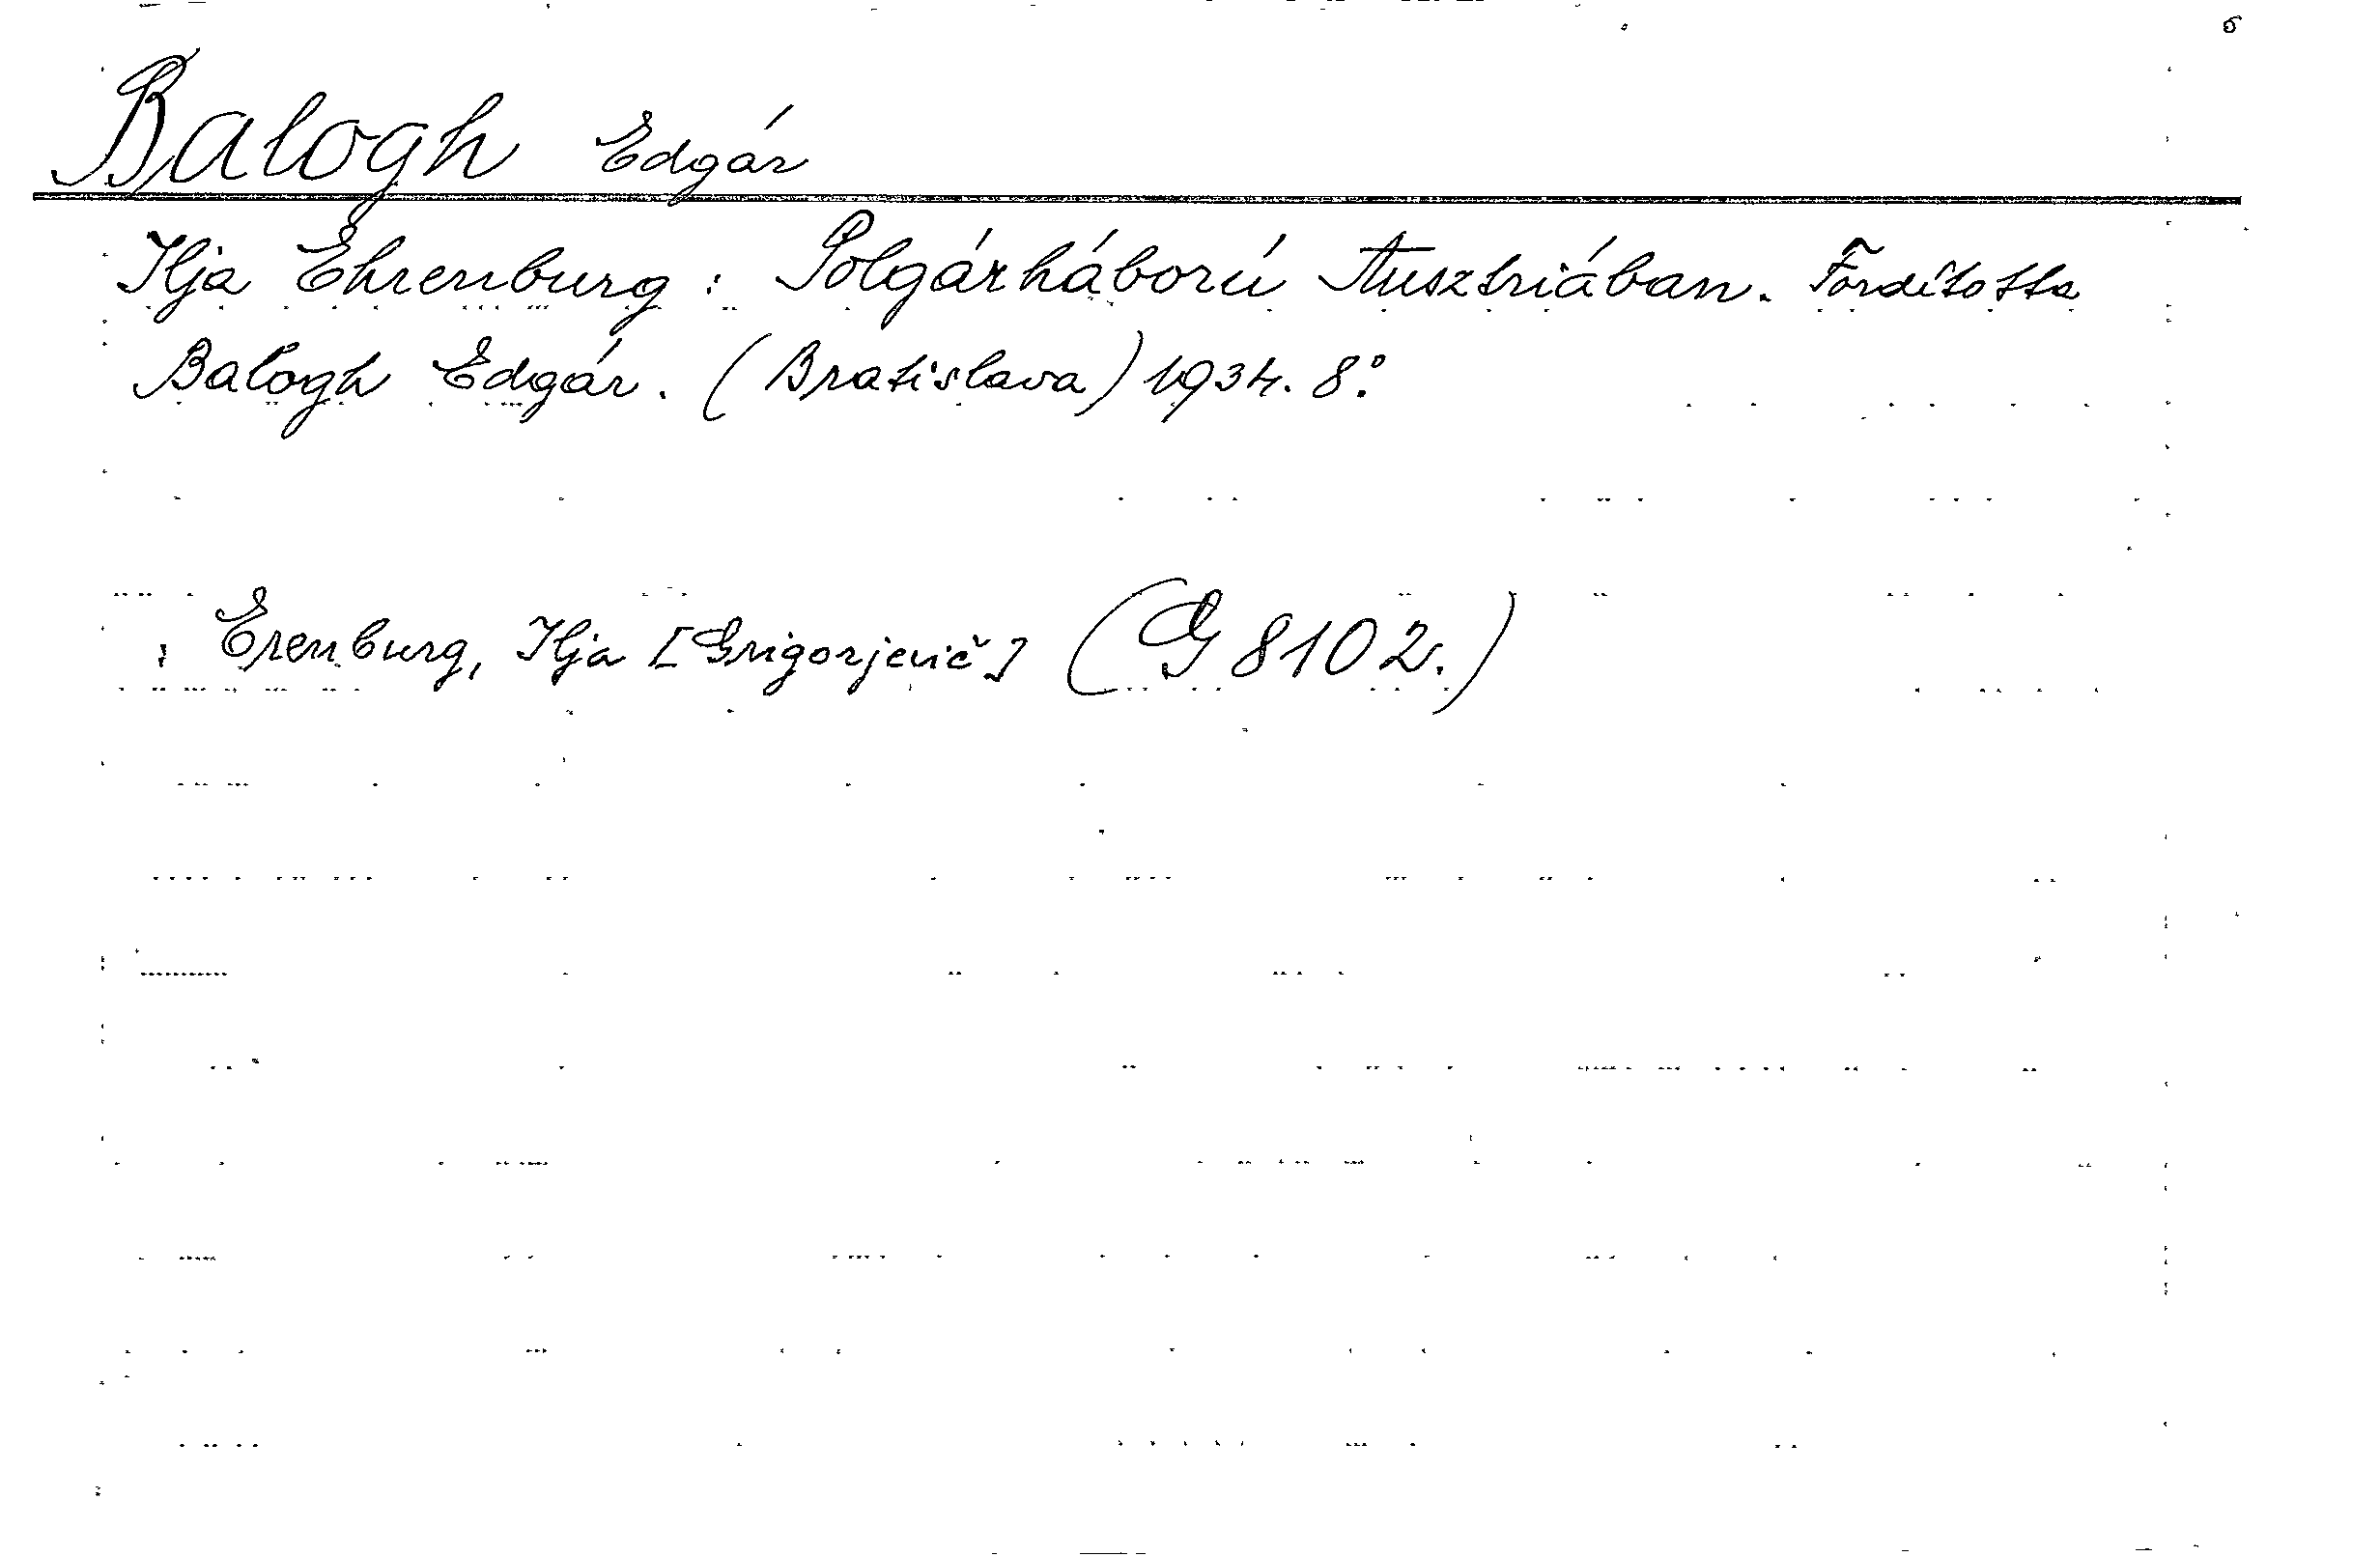 Balogh Edgár
Ilja Ehrenburg: Polgárháború Ausztriában. Fordította
Balogh Edgár. (Bratislava) 1934. 8°.
: Erenburg, Ilja [Grigorjevič] (G 8102.)